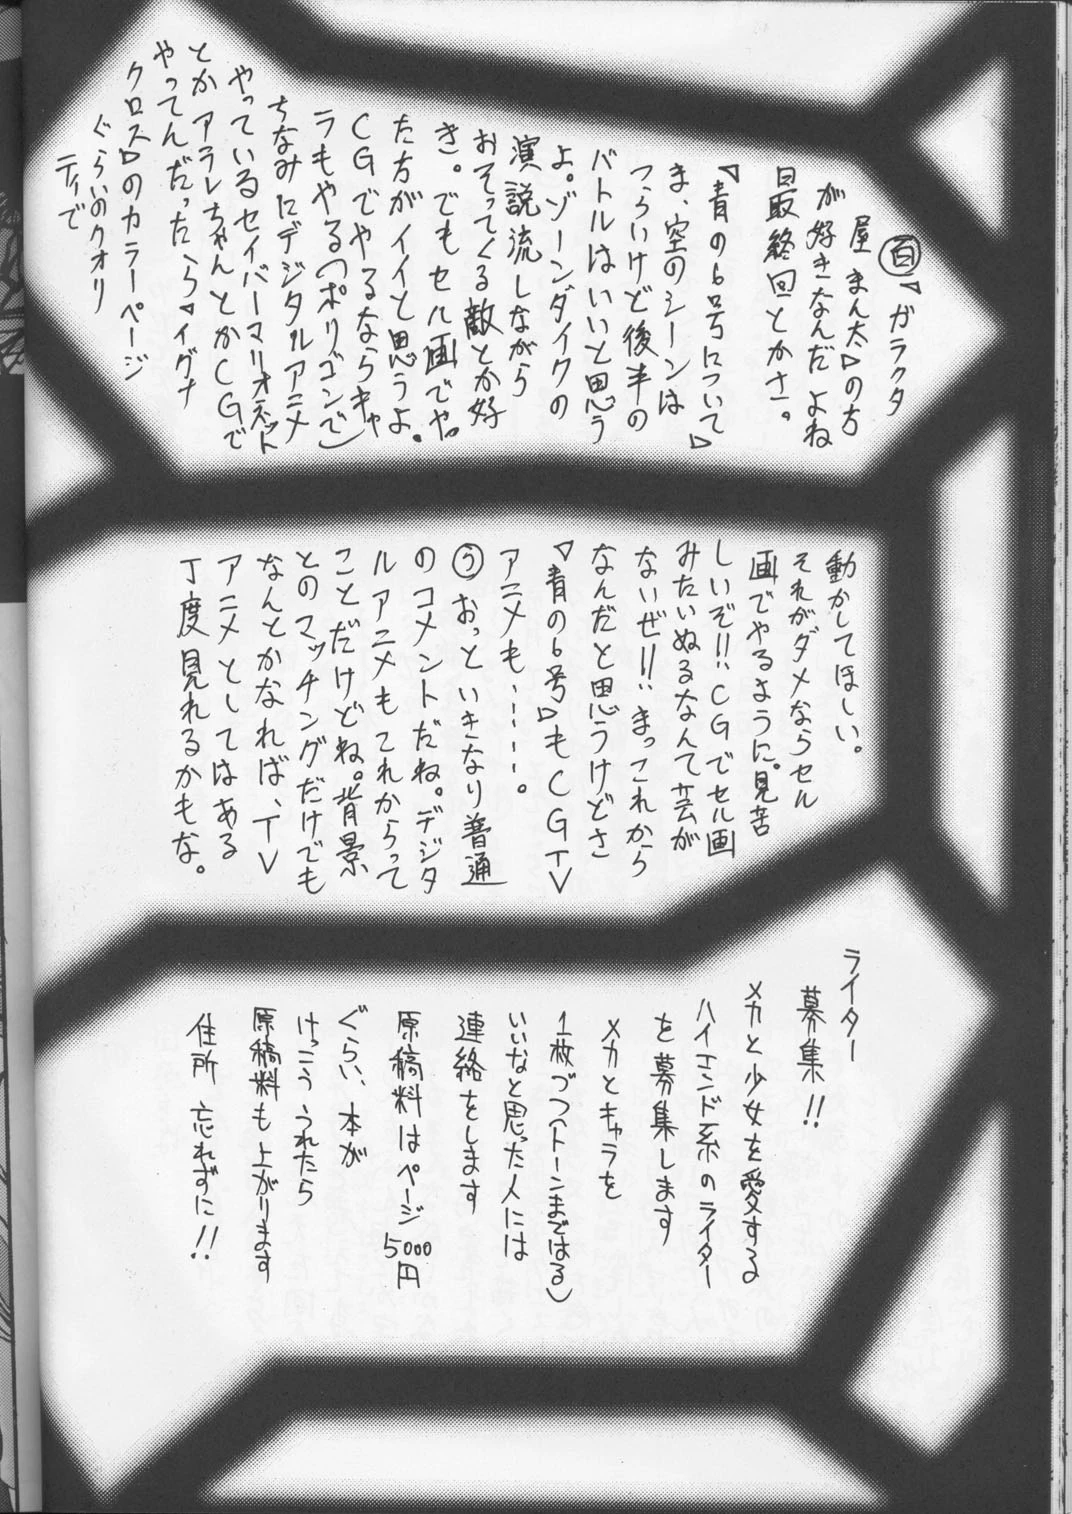 百▽ガラクタ
屋まん太▷の方
が好きなんだよね
最終回とかさ。
▽青の6号について▷
ま、空のシーンは
つらいけど後半の
バトルはいいと思う
よ。ゾーンダイクの
演説流しながら
おそってくる敵とか好
き。でもセル画でや
った方がイイと思うよ。
CGでやるならキャ
ラもやる(ポリゴンで)
ちなみにデジタルアニメ
やっているセイバーマリオネット
とかアラレちゃんとかCGで
やってんだったら▽イグナ
クロス▷のカラーページ
ぐらいのクォリ
ティで
動かしてほしい。
それがダメならセル
画でやるように。見苦
しいぞ!!CGでセル画
みたいぬるなんて芸が
ないぜ!!まっこれから
なんだと思うけどさ
▽青の6号▷もCGTV
アニメも・・・・・。
うおっといきなり普通
のコメントだね。デジタ
ルアニメもこれからって
ことだけどね。背景
とのマッチングだけでも
なんとかなれば、TV
アニメとしてはある
丁度見れるかもな。
ライター
募集!!
メカと少女を愛する
ハイエンド系のライター
を募集します
メカとキャラを
1枚づつ(トーンまではる)
いいなと思った人には
連絡をします
原稿料はページ5000円
ぐらい、本が
けっこううれたら
原稿料も上がります
住所忘れずに!!